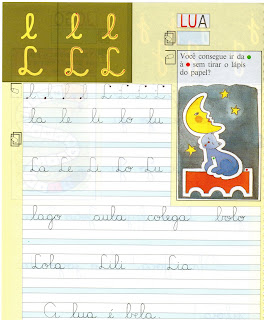 l l l l
L L L L
LUA
l
Você consegue ir da
a sem tirar o lápis
do papel?
la le li lo lu
La Le Li Lo Lu
lago aula colega bolo
Lola Lili Lia
A lua é bela.